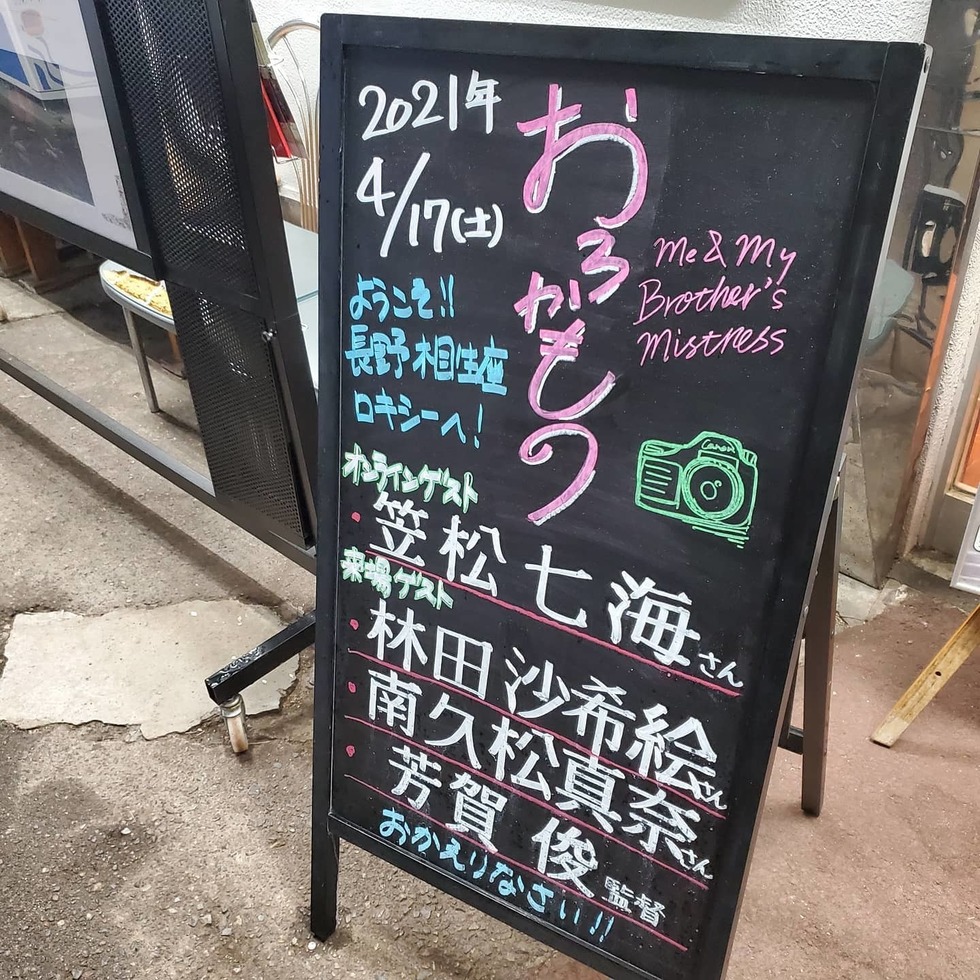 2021年
4/17(土)
おろかもの
Me & My
Brother's
Mistress
ようこそ!!
長野相生座
ロキシーへ!
Canon
オンラインゲスト
・笠松七海さん
来場ゲスト
・林田沙希絵さん
・南久松真奈さん
・芳賀俊監督
おかえりなさい!!